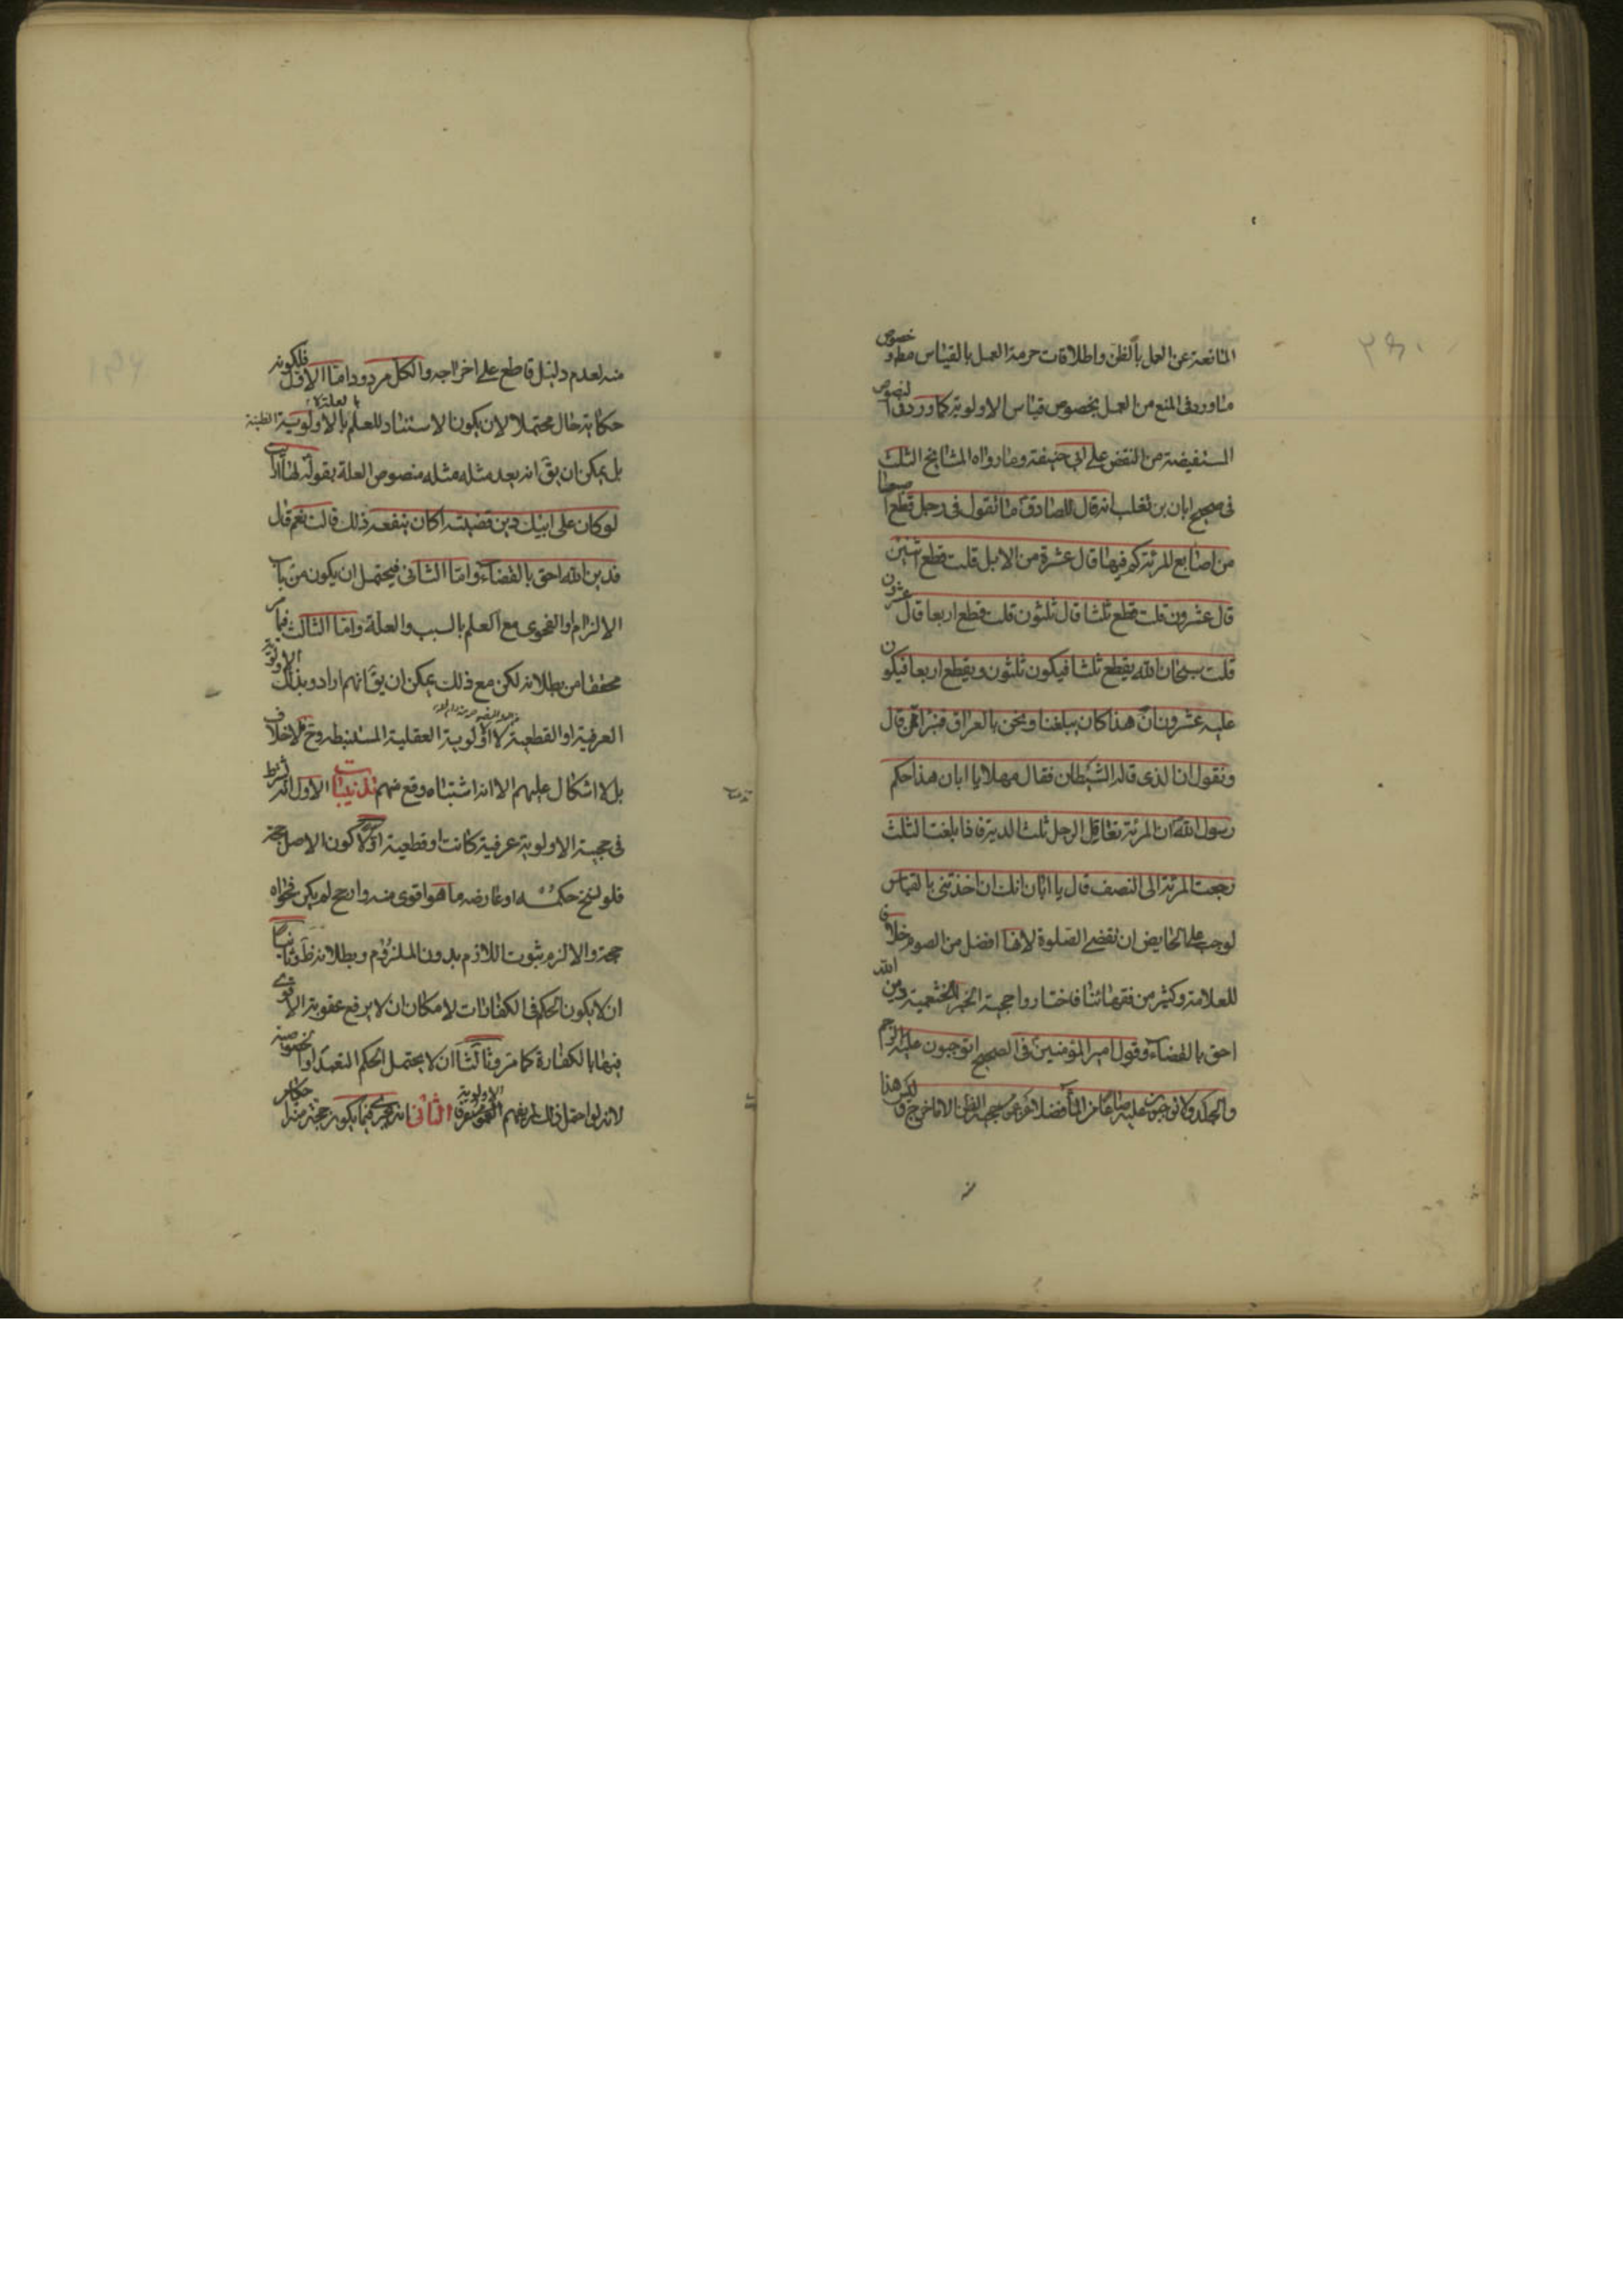 المانعة عن العمل بالظن واطلاقات حرمة العمل بالقياس مط و خصوص
ما ورد فى المنع من العمل بخصوص قياس الاولوية كما ورد فى النصوص
المستفيضة من النقض على ابى حنيفة وما رواه المشايخ الثلث
فى صحيح ابان بن تغلب انه قال للصادق ما تقول فى رجل قطع اصبعا
من اصابع المرئة كم فيها قال عشرة من الابل قلت قطع اثنين
قال عشرون قلت قطع ثلثا قال ثلثون قلت قطع اربعا قال عشرون
قلت سبحان الله يقطع ثلثا فيكون ثلثون ويقطع اربعا فيكون
عليه عشرون ان هذا كان يبلغنا ونحن بالعراق فنبرا ممن قال
ونقول ان الذى قاله الشيطان فقال مهلا يا ابان هذا حكم
رسول الله ان المرئة تعاقل الرجل ثلث الدية فاذا بلغت الثلث
رجعت المرئة الى النصف قال يا ابان انك ان اخذتنى بالقياس
لوجب على الحايض ان تقضى الصلوة لانها افضل من الصوم خلافا
للعلامة وكثير من فقهائنا فاختاروا حجية الخبر الخثعمية دين الله
احق بالقضاء وقول امير المؤمنين فى الصحيح اتوجبون عليه الرجم
والحد ولا توجبون عليه صاعا من الماء لكن هذا
منه
منه لعدم دليل قاطع على اخراجه والكل مردود اما الاول فلكونه
حكاية حال محتملا لان يكون الاستناد للعلم بالعلة لا بالاولوية الظنية
بل يمكن ان يق انه بعد مثله مثله منصوص العلة بقوله لها ارايت
لو كان على ابيك دين قضيته اكان ينفعه ذلك قالت نعم قال
فدين الله احق بالقضاء واما الثانى فيحتمل ان يكون من باب
الالزام او الفحوى مع العلم بالسبب والعلة واما الثالث فبما مر
محققا من بطلانه لكن مع ذلك يمكن ان يق انهم ارادو بذلك الاولوية
العرفية او القطعية لا الاولوية العقلية المستنبطة وح فلا خلاف
بل لا اشكال عليهم الا انه اشتباه وقع منهم تذنيبات الاول انه يشترط
فى حجية الاولوية عرفية كانت او قطعية اولا كون الاصل حجة
فلو نسخ حكمه او عارضه ما هو اقوى منه وارجح لم يكن فحواه
حجة والا لزم ثبوت اللازم بدون الملزوم وبطلانه ظ وثانيا
ان لا يكون الحكم فى الكفارات لامكان ان لا يرفع عقوبة الاقوى
فيها بالكفارة كما مر وثالثا ان لا يحتمل الحكم التعبد او الخصوصية
لانه لو احتمل ذلك لم يفهم الاولوية الثانى انه يجرى فيما يكون حجة منه